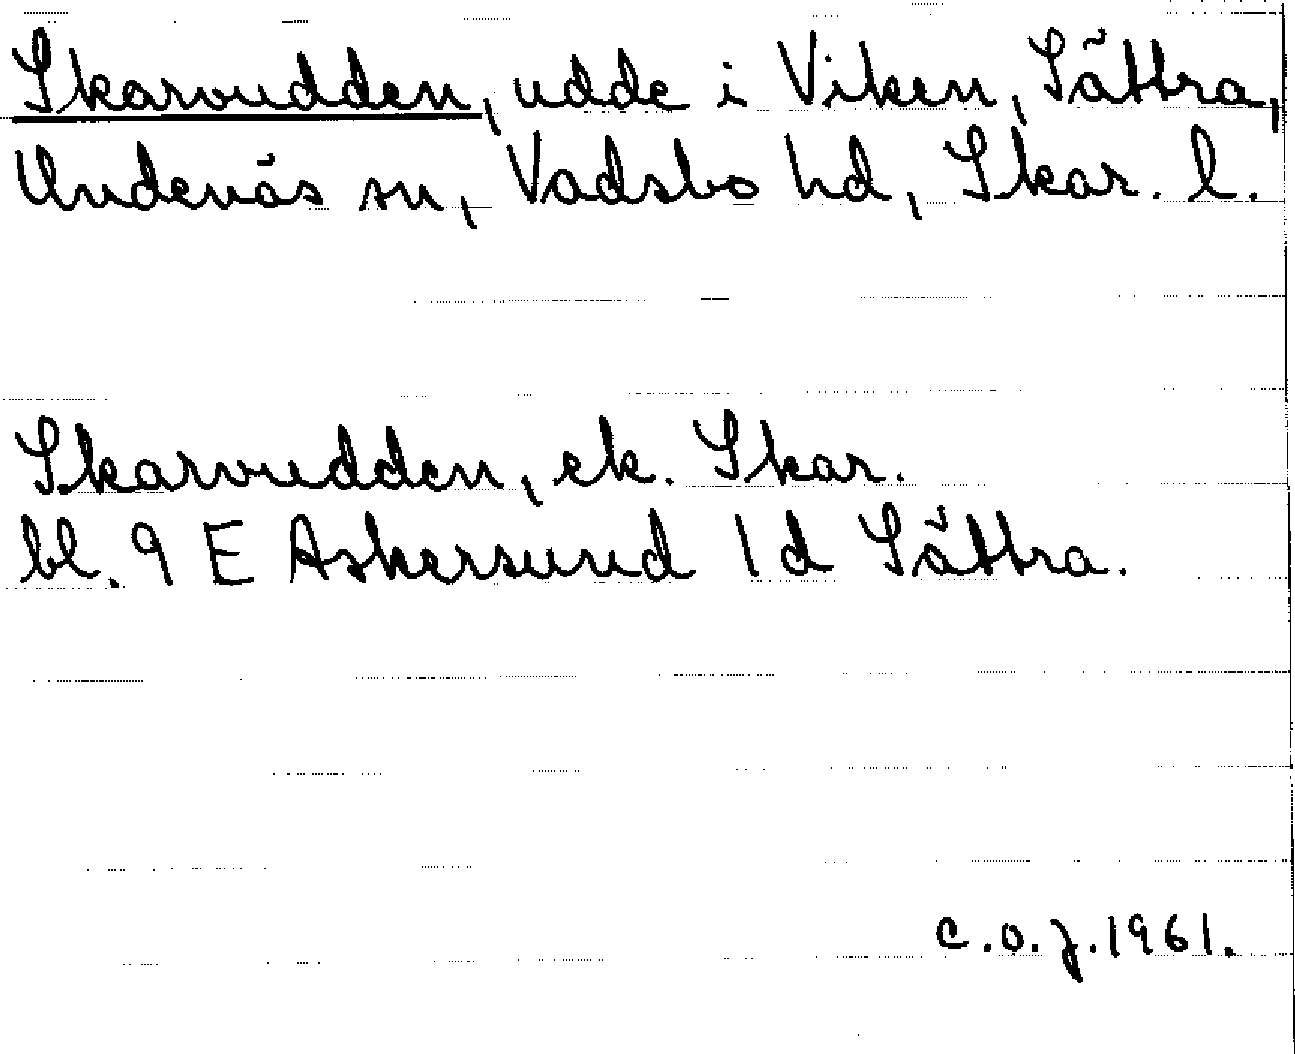 Skarvudden, udde i Viken, Sättra,
Undenäs sn, Vadsbo hd, Skar. l.
Skarvudden, ek. Skar.
bl. 9 E Askersund 1 d Sättra.
C.O.J. 1961.